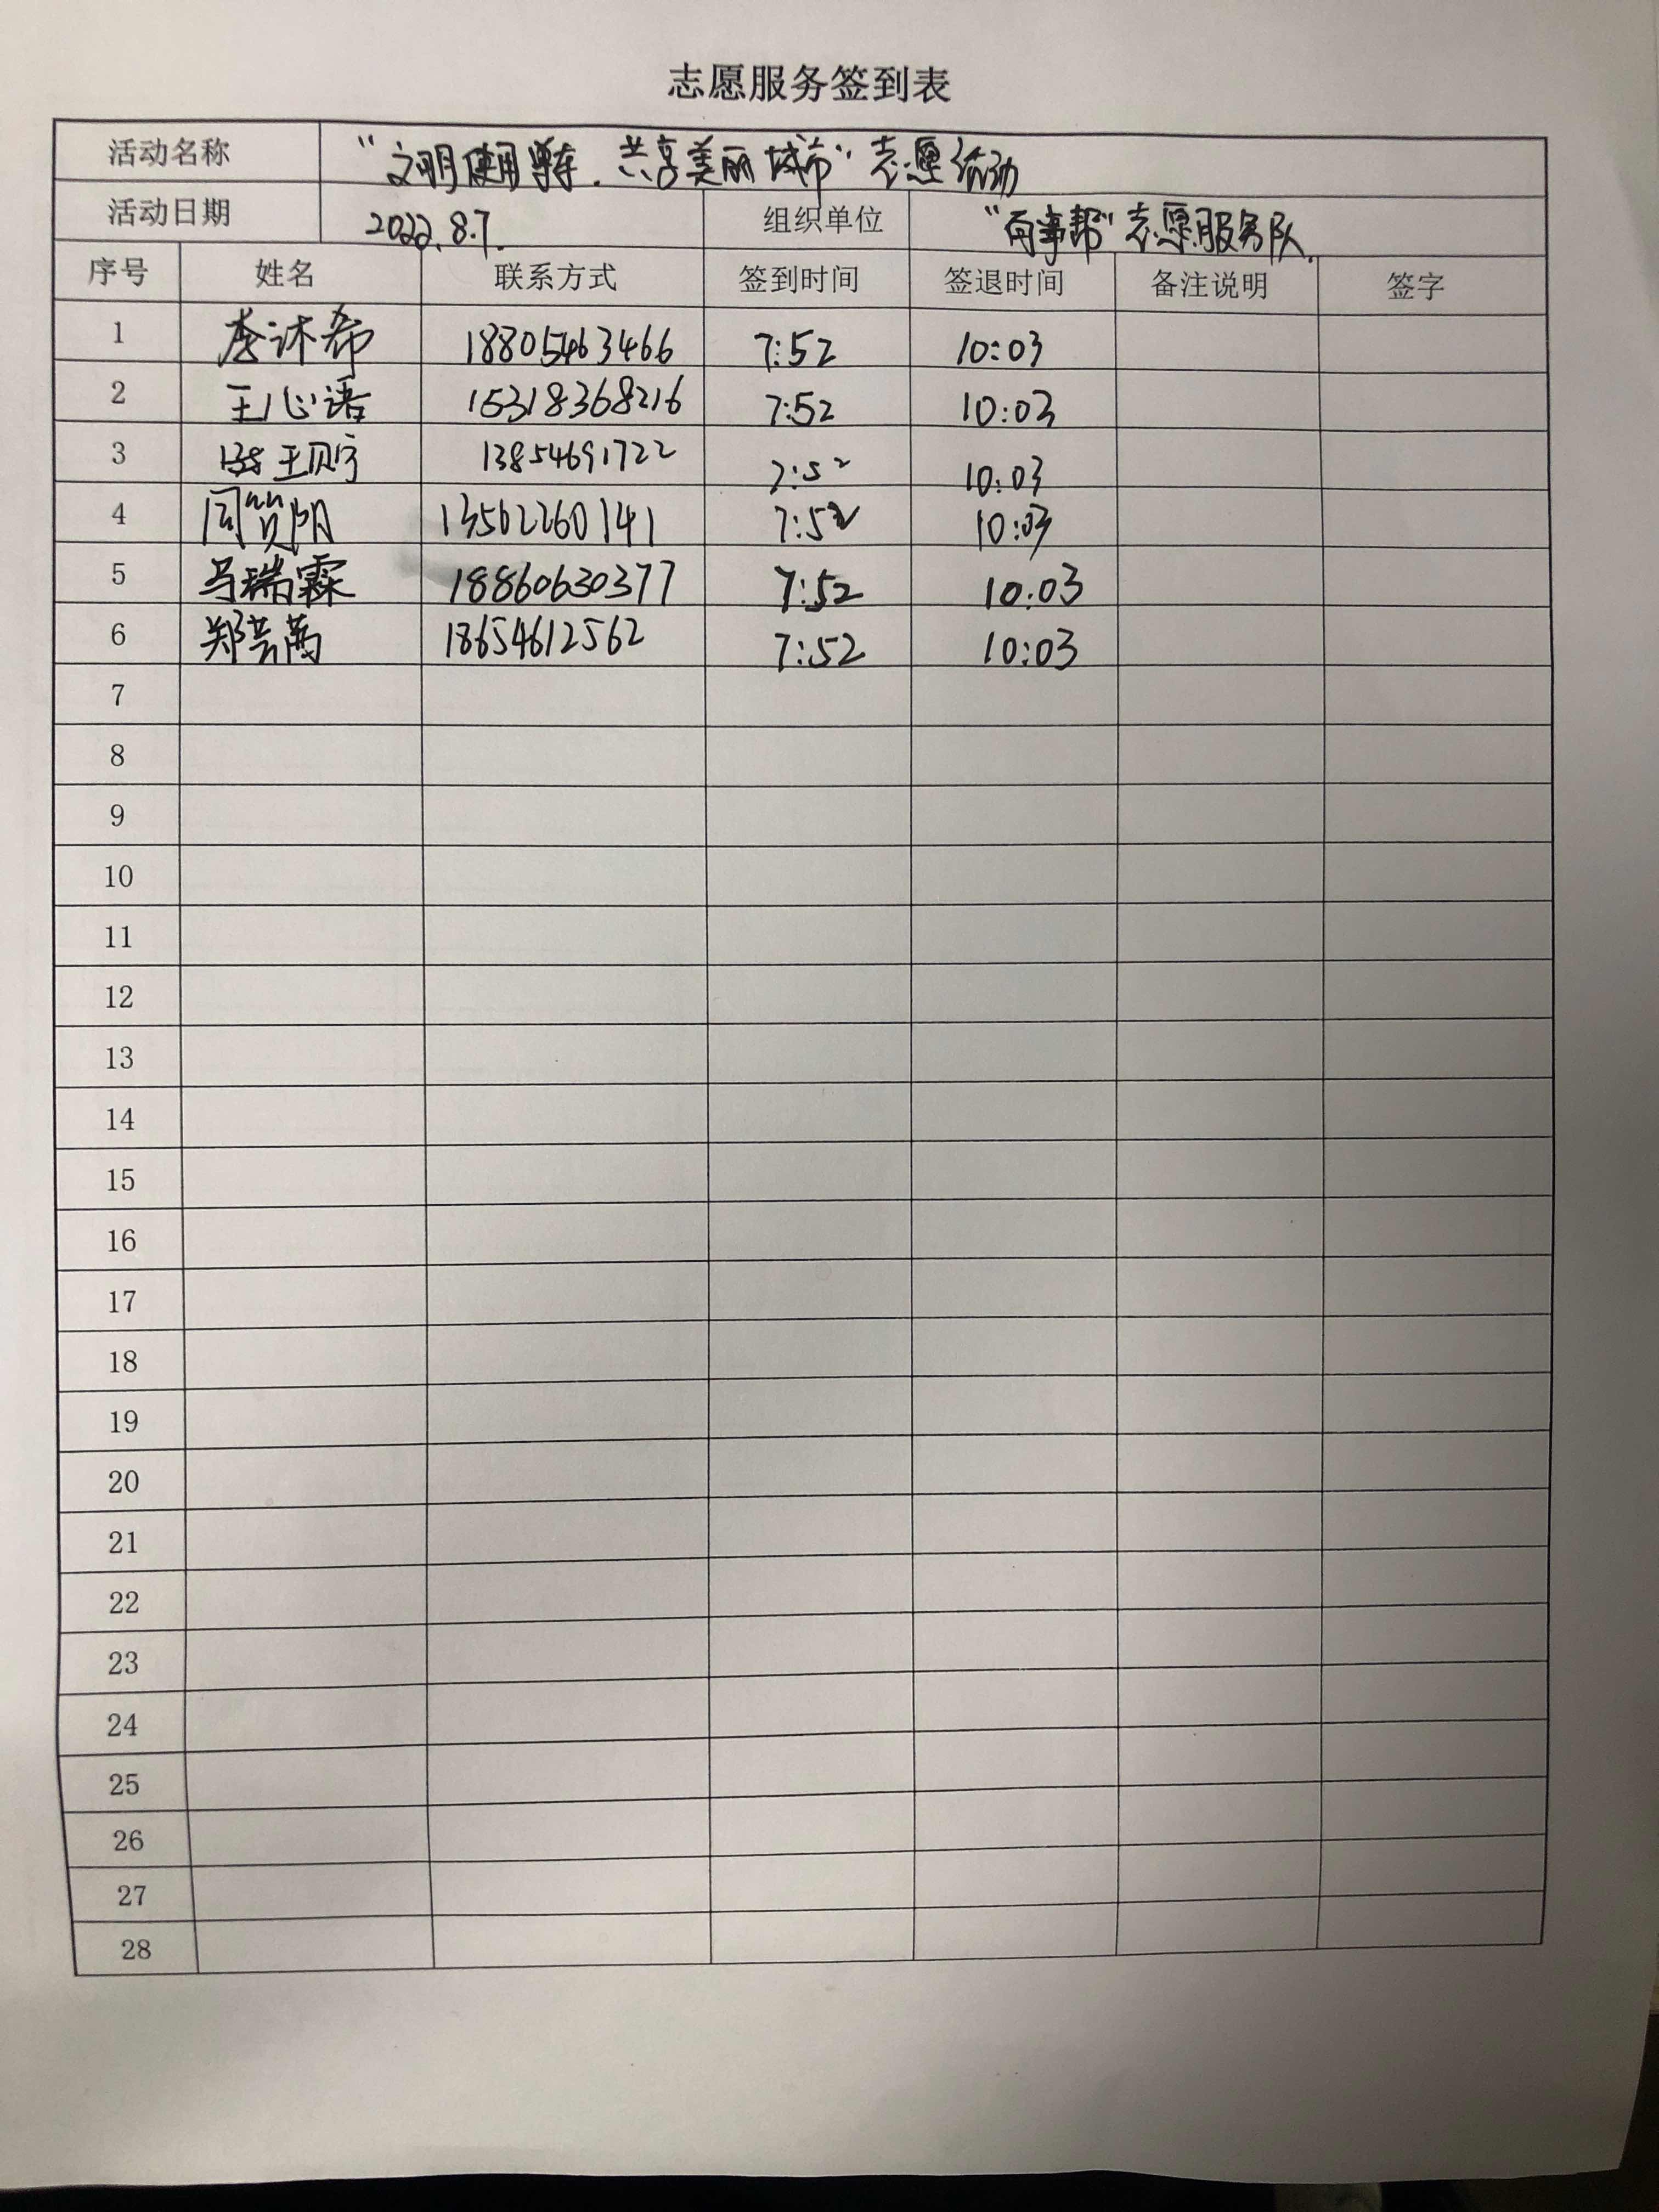 志愿服务签到表
活动名称 “文明使用单车，共享美丽城市”志愿活动
活动日期 2022.8.7. 组织单位 “百事帮”志愿服务队.
序号 姓名 联系方式 签到时间 签退时间 备注说明 签字
1 李沐希 18805463466 7:52 10:03
2 王心语 15318368216 7:52 10:03
3 王贝宁 13854691722 7:52 10:03
4 周贺阳 13562260141 7:52 10:03
5 马瑞霖 18860630377 7:52 10:03
6 郑芸菡 18654612562 7:52 10:03
7
8
9
10
11
12
13
14
15
16
17
18
19
20
21
22
23
24
25
26
27
28